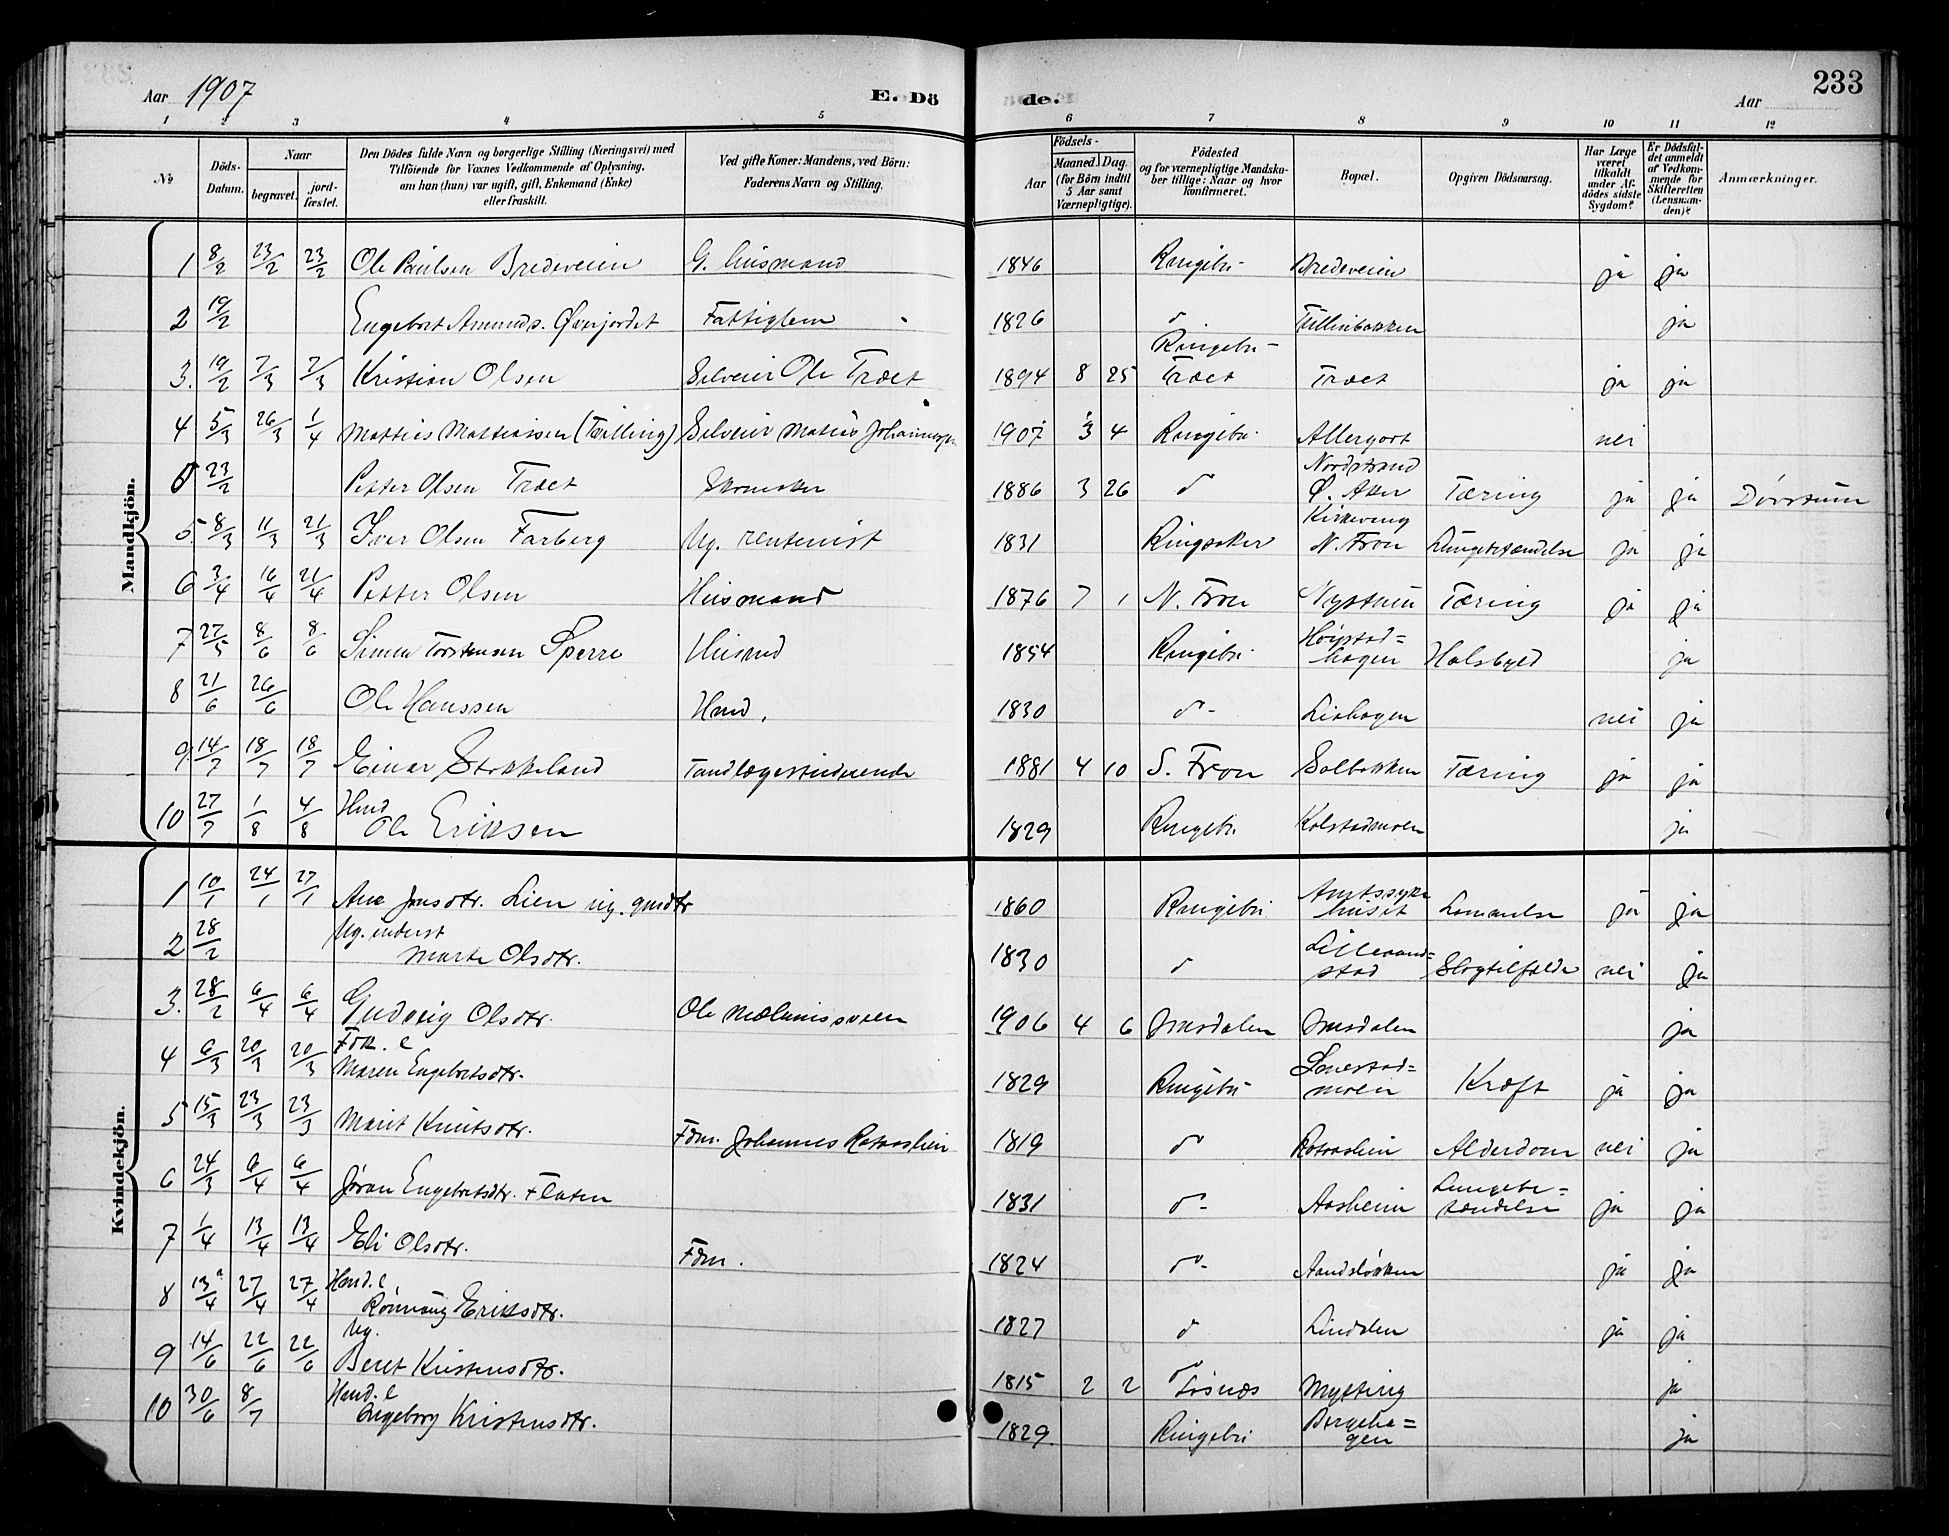 Aar 1907
E. Dö
de.
Aar
233
1 2 3 4 5 6 7 8 9 10 11 12
No
Döds-Datum.
Naar
begravet.
jord-fæstet.
Den Dödes fulde Navn og borgerlige Stilling (Næringsvei) med
Tilföiende for Voxnes Vedkommende af Oplysning,
om han (hun) var ugift, gift, Enkemand (Enke)
eller fraskilt.
Ved gifte Koner: Mandens, ved Börn:
Faderens Navn og Stilling.
Födsels-
Aar
Maaned.
Dag.
(for Börn indtil
5 Aar samt
Værnepligtige).
Födested
og for værnepligtige Mandska-
ber tillige: Naar og hvor
konfirmeret.
Bopæl.
Opgiven Dödsaarsag.
Har Læge
været
tilkaldt
under Af-
dödes sidste
Sygdom?
Er Dödsfal-
det anmeldt
af Vedkom-
mende for
Skifteretten
(Lensman-
den)?
Anmærkninger.
Mandkjön.
1 8/2 23/2 23/2 Ole Paulsen Bredeveien G. Husmand 1846 Ringebu Bredeveien ja ja
2 19/2 Engebret Amunds. Øverjordet Fattiglem 1826 d Tullinbakken ja
3. 19/2 7/3 7/3 Kristian Olsen Selveier Ole Træet 1894 8 25 Ringebu- Træet Træet ja ja
4 5/3 26/3 1/4 Mattias Mattiassen (Tvilling) Selveier Matias Johannessen 1907 3 4 Ringebu Allergodt nei
5 23/2 Petter Olsen Træet Skomaker 1886 3 26 d Nordstrand Ø. Aker Tæring ja ja
5. 8/3 11/3 21/3 Iver Olsen Farberg Ug. rentenist 1831 Ringsaker Kirkeveng N. Fron Lungebetændelse ja ja
6 3/4 16/4 21/4 Petter Olsen Husmand 1876 7 1 N. Fron Nystuen Tæring ja ja
7 27/5 8/6 8/6 Simen Torstensen Sperre Husmd 1854 Ringebu Høistad=hagen Halsbyld ja
8 21/6 26/6 Ole Hanssen Hmd. 1830 d- Liehagen nei ja
9. 14/7 18/7 18/7 Einar Stokkeland Tandlægestuderende 1881 4 10 S. Fron Solbakken Tæring ja ja
10 27/7 1/8 4/8 Hmd Ole Eriksen 1829 Ringebu Kolstadmoen ja
Kvindekjön.
1 10/1 24/1 27/1 Ane Jonsdtr. Lien ug. gmdtr 1860 Ringebu Amtssyke huset Lamanelse ja ja
2 28/2 Ug. inderst Marte Olsdtr. 1830 d Lilleaand=stad Slagtilfælde nei ja
3. 28/2 6/4 6/4 Gudveig Olsdtr. Ole Mælumssveen 1906 4 6 Imsdalen Imsdalen ja
4 6/3 20/3 20/3 Fdm. e Maren Engebretsdtr. 1829 Ringebu Lonestad=moen Kræft ja ja
5 15/3 23/3 23/3 Marit Knutsdtr. Fdm. Johannes Rotaaslien 1819 d Rotaaslien Alderdom nei ja
6 24/3 6/4 6/4 Jøran Engebretsdtr. Flaten 1831 d- Aasheim Lungebe=tændelse ja ja
7 1/4 13/4 13/4 Eli Olsdtr. Fdm. 1824 d- Aandsløkken ja ja
8 13/4 27/4 27/4 Hmd. e Rønnaug Eriksdtr. 1827 d Lindalen ja ja
9 14/6 22/6 22/6 Ug. Beret Kristensdtr. 1815 2 2 Losnæs Mytting ja
10 30/6 8/7 Hmd. e Ingeborg Kristensdtr. 1829 Ringebu Bergeha=gen ja